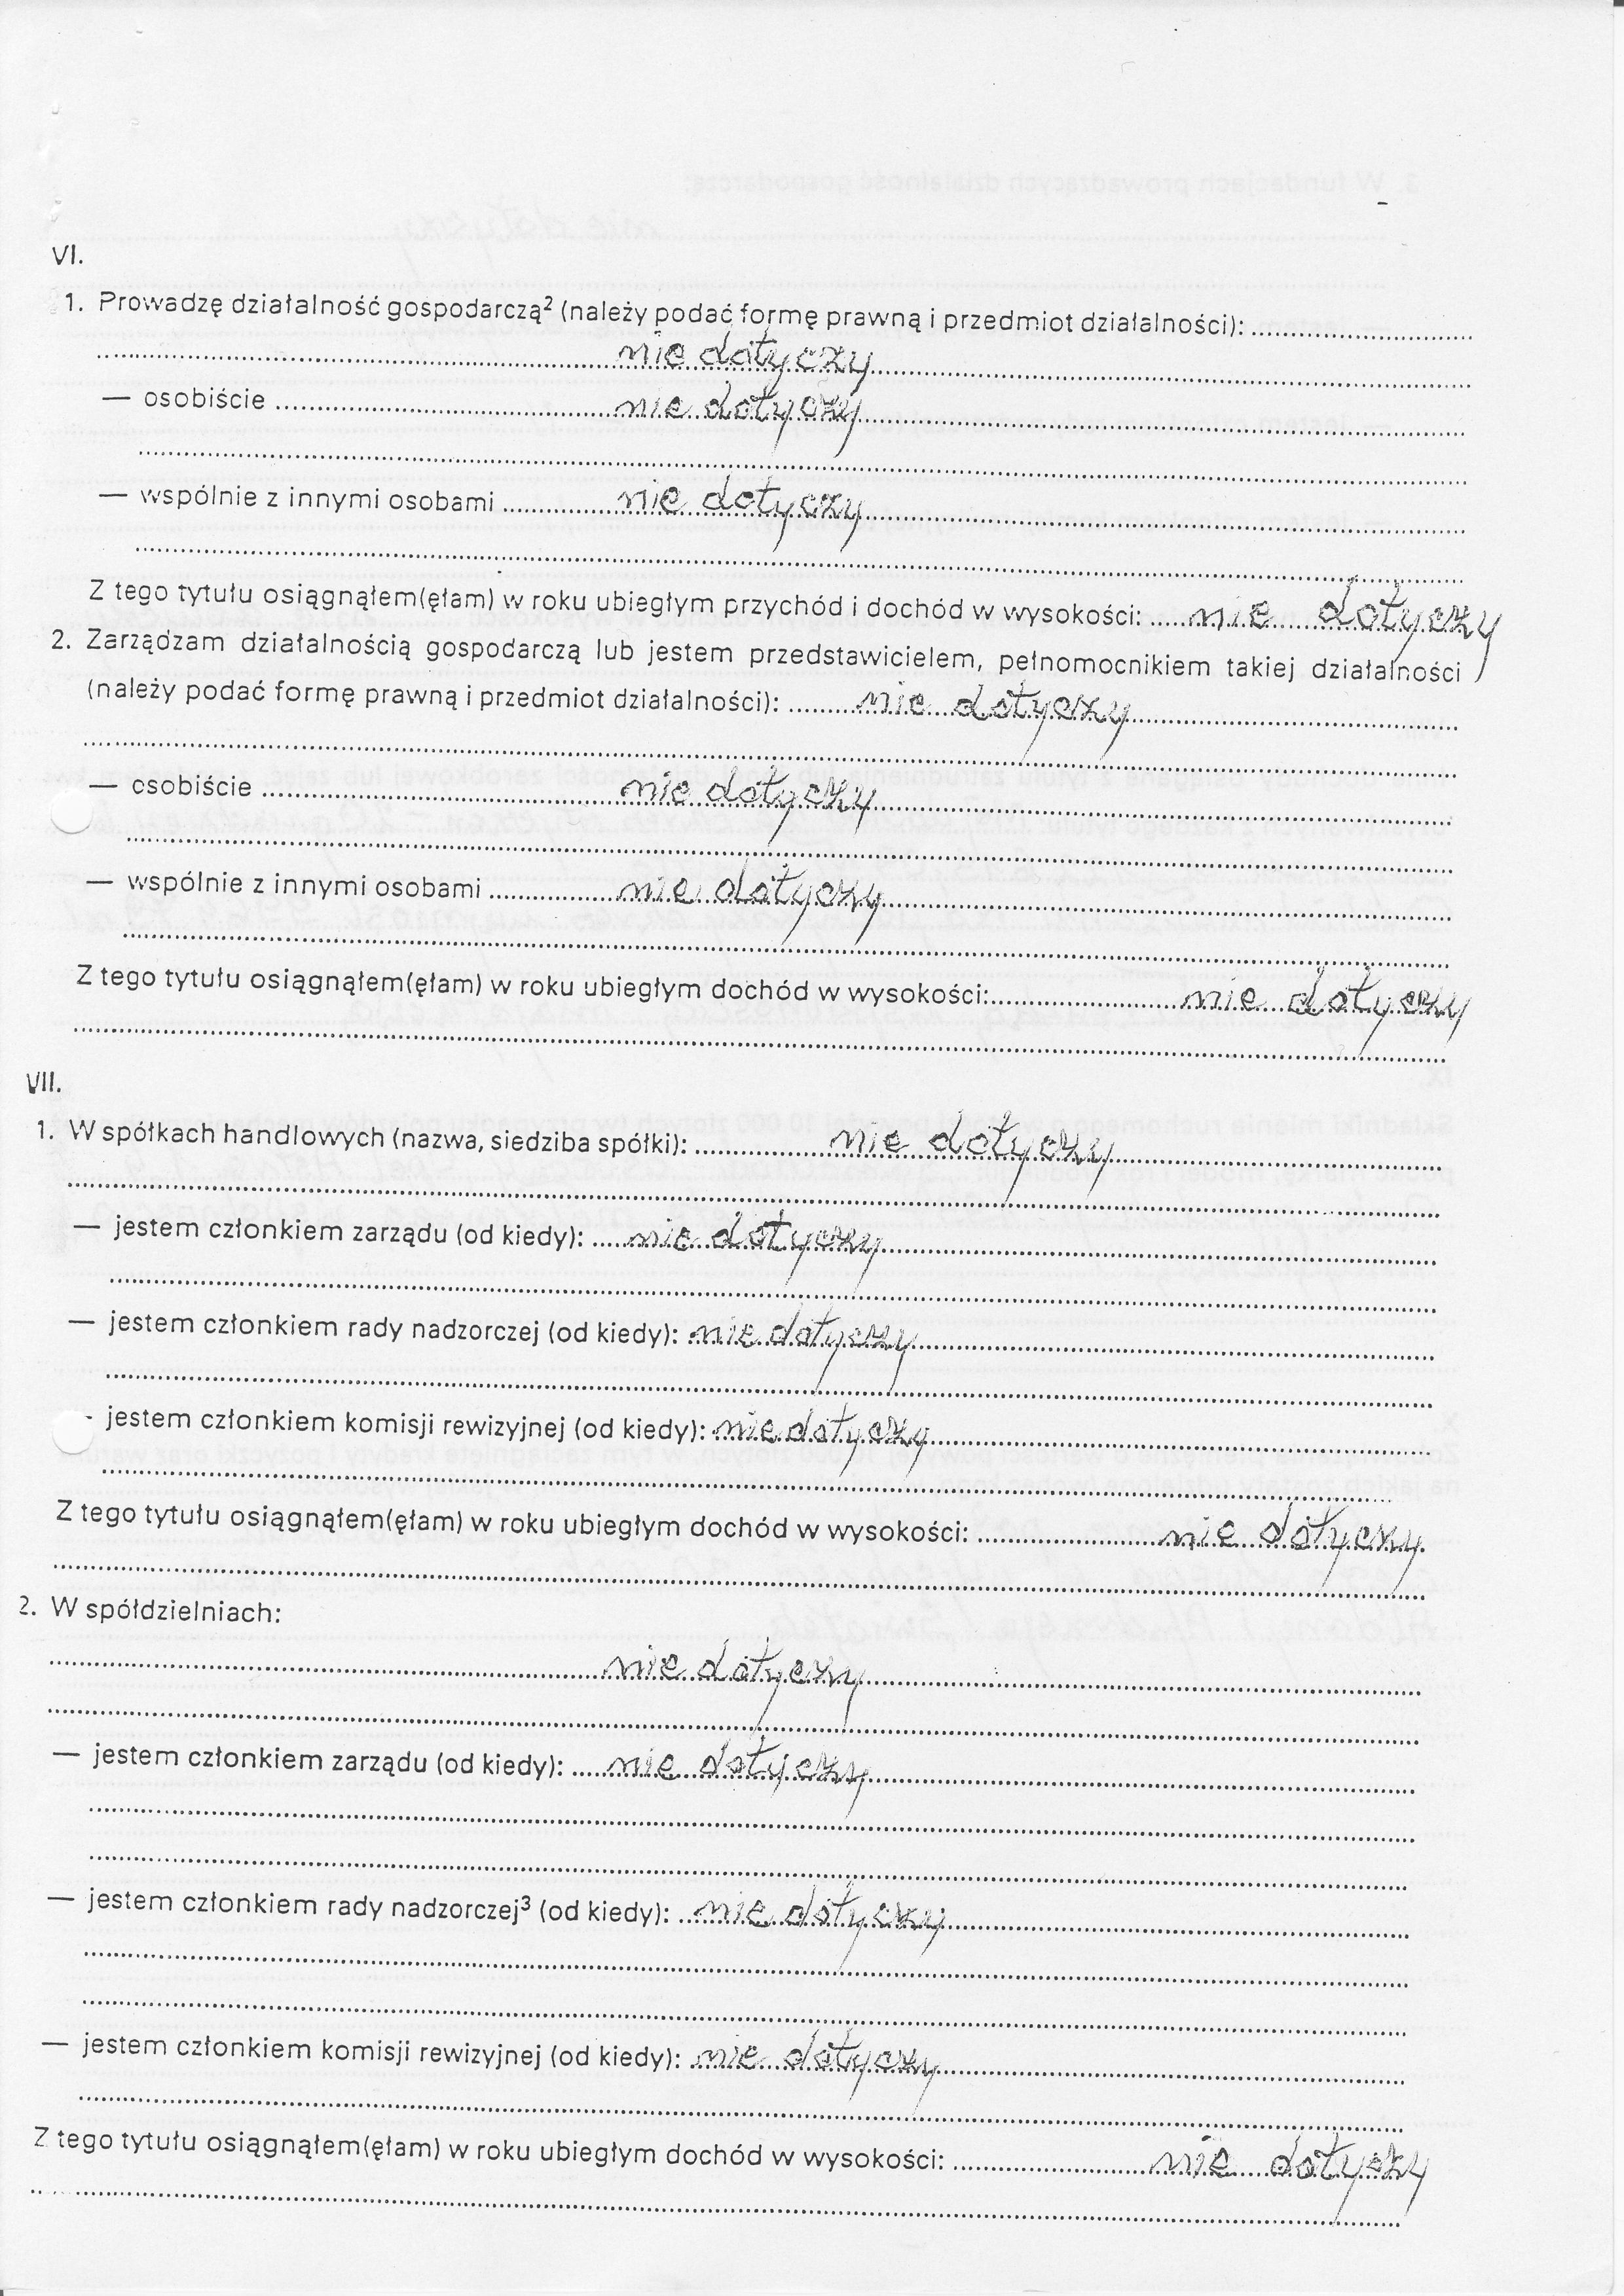 VI.
1. Prowadzę działalność gospodarczą² (należy podać formę prawną i przedmiot działalności): ....................
.................... nie dotyczy ....................
— osobiście .................... nie dotyczy ....................
....................
— wspólnie z innymi osobami .................... nie dotyczy ....................
....................
Z tego tytułu osiągnąłem(ęłam) w roku ubiegłym przychód i dochód w wysokości: ..... nie dotyczy
2. Zarządzam działalnością gospodarczą lub jestem przedstawicielem, pełnomocnikiem takiej działalności
(należy podać formę prawną i przedmiot działalności): .......... nie dotyczy ....................
....................
— osobiście .................... nie dotyczy ....................
....................
— wspólnie z innymi osobami .................... nie dotyczy ....................
....................
Z tego tytułu osiągnąłem(ęłam) w roku ubiegłym dochód w wysokości:.................... nie dotyczy
....................
VII.
1. W spółkach handlowych (nazwa, siedziba spółki): .................... nie dotyczy ....................
....................
— jestem członkiem zarządu (od kiedy): ..... nie dotyczy ....................
....................
— jestem członkiem rady nadzorczej (od kiedy): nie dotyczy ....................
....................
- jestem członkiem komisji rewizyjnej (od kiedy): nie dotyczy ....................
....................
Z tego tytułu osiągnąłem(ęłam) w roku ubiegłym dochód w wysokości: .................... nie dotyczy
....................
2. W spółdzielniach:
.................... nie dotyczy ....................
....................
— jestem członkiem zarządu (od kiedy): ..... nie dotyczy ....................
....................
....................
— jestem członkiem rady nadzorczej³ (od kiedy): .. nie dotyczy ....................
....................
....................
— jestem członkiem komisji rewizyjnej (od kiedy): nie dotyczy ....................
....................
Z tego tytułu osiągnąłem(ęłam) w roku ubiegłym dochód w wysokości: .................... nie dotyczy
....................